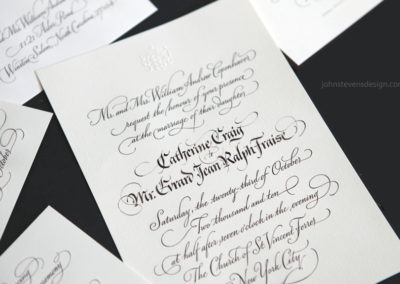 Mr. and Mrs. William Andrew Copenhaver
request the honour of your presence
at the marriage of their daughter
Catherine Craig
to
Mr. Erard Jean Ralph Fraise
Saturday, the twenty-third of October
Two thousand and ten
at half after seven o'clock in the evening
The Church of St. Vincent Ferrer
New York City
Mrs. William Andrew Copenhaver
Winston Salem, North Carolina
October
johnstevensdesign.com